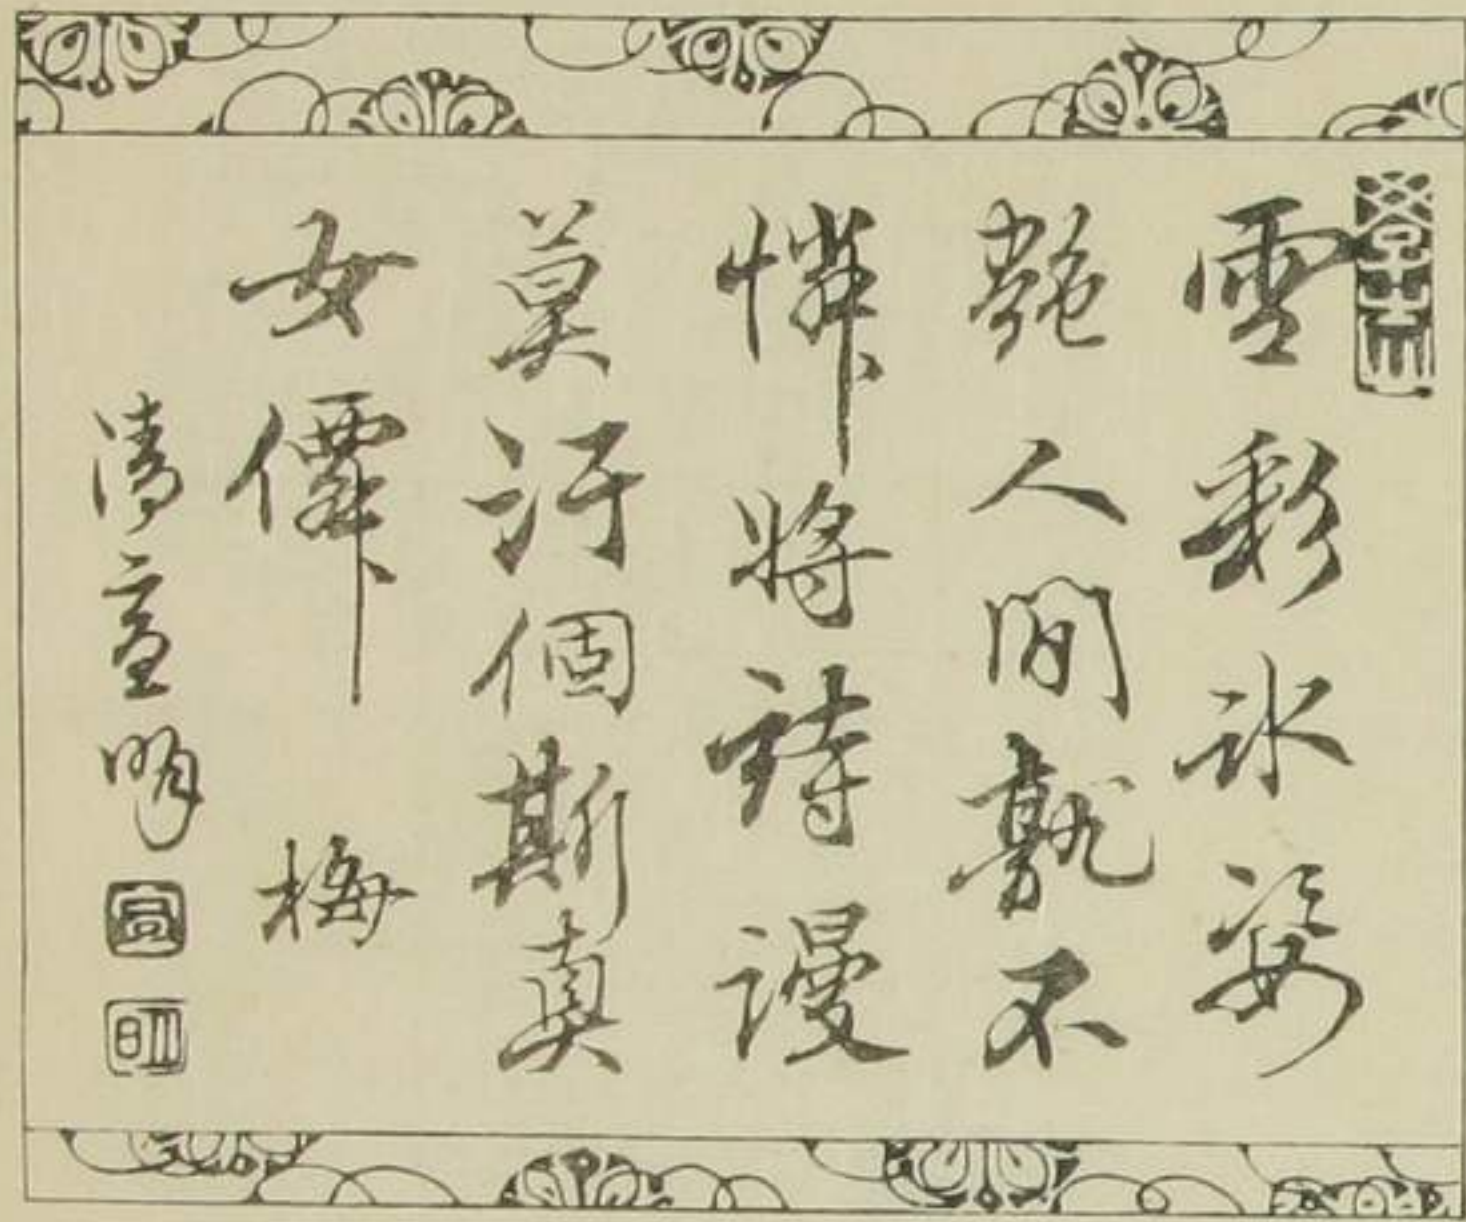 雪彩氷姿
艶人間孰不
憐將詩謾
莫汙個斯真
女僊 梅
清宣明